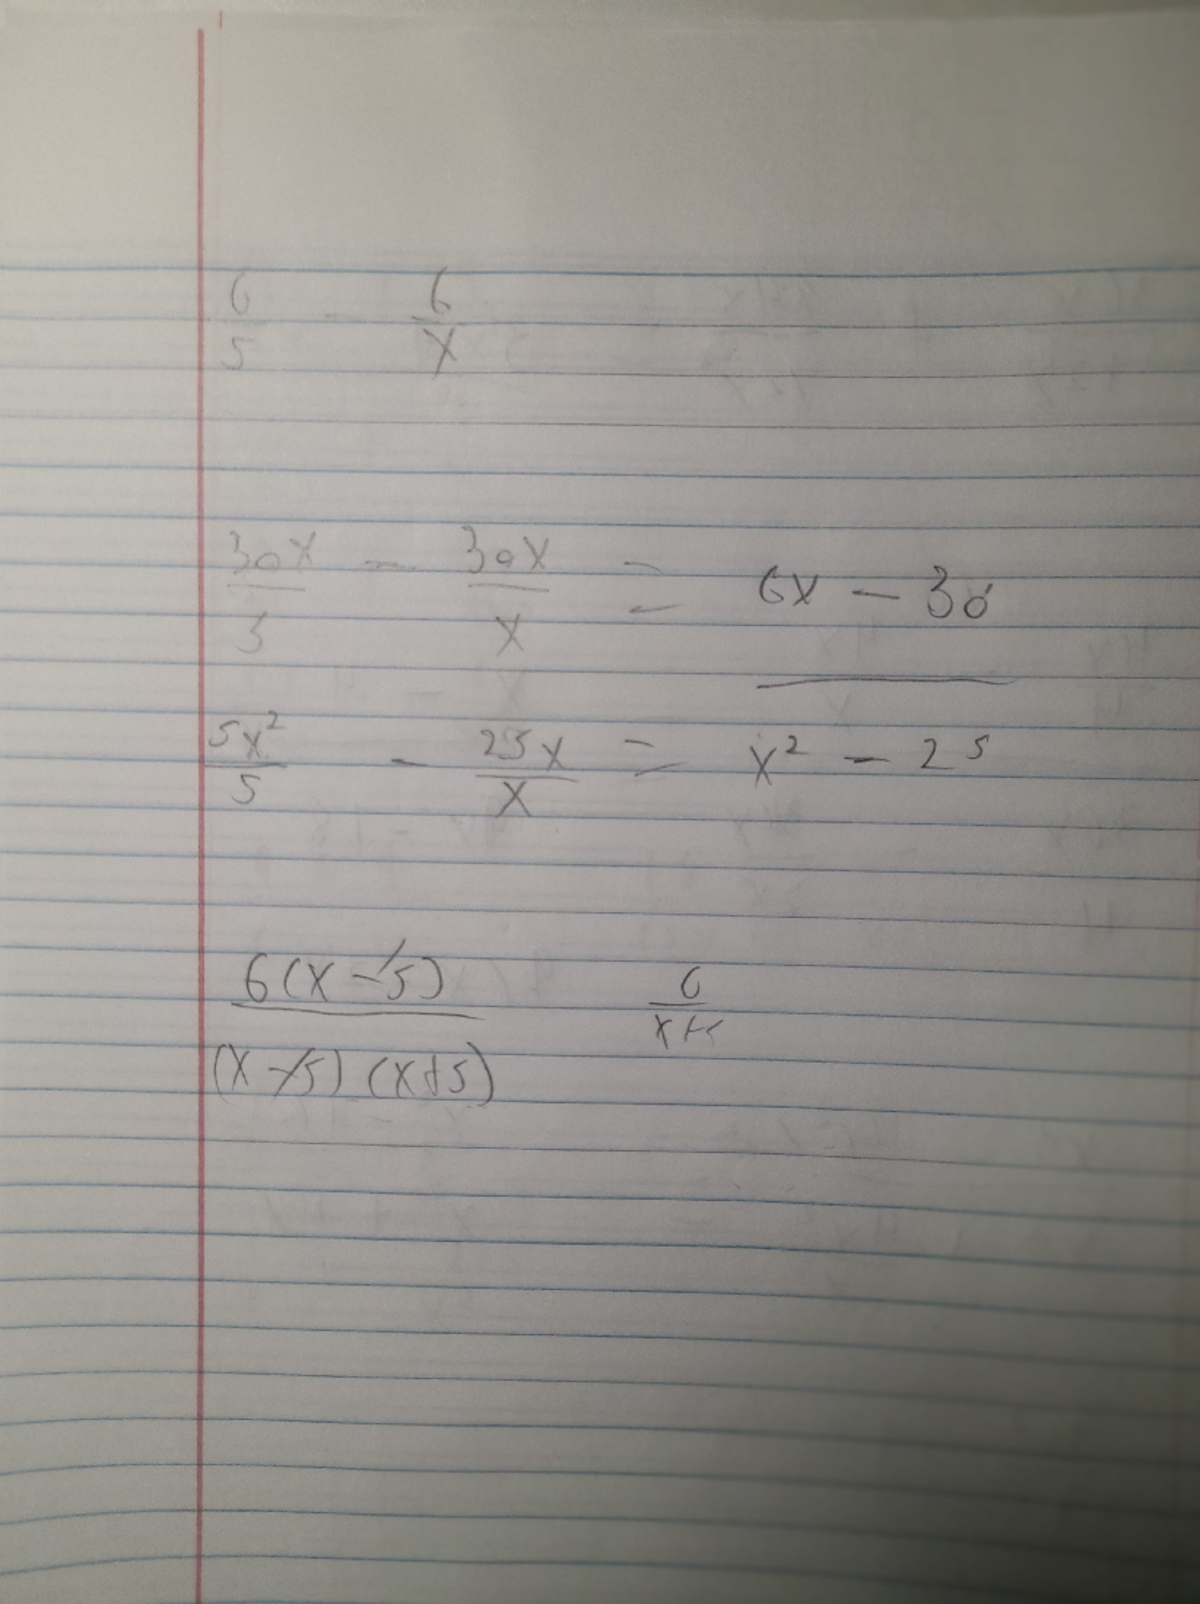 6/5 - 6/x
30x/5 - 30x/x = 6x - 30
5x²/5 - 25x/x = x² - 25
6(x-5) / (x-5)(x+5)
6/x+5